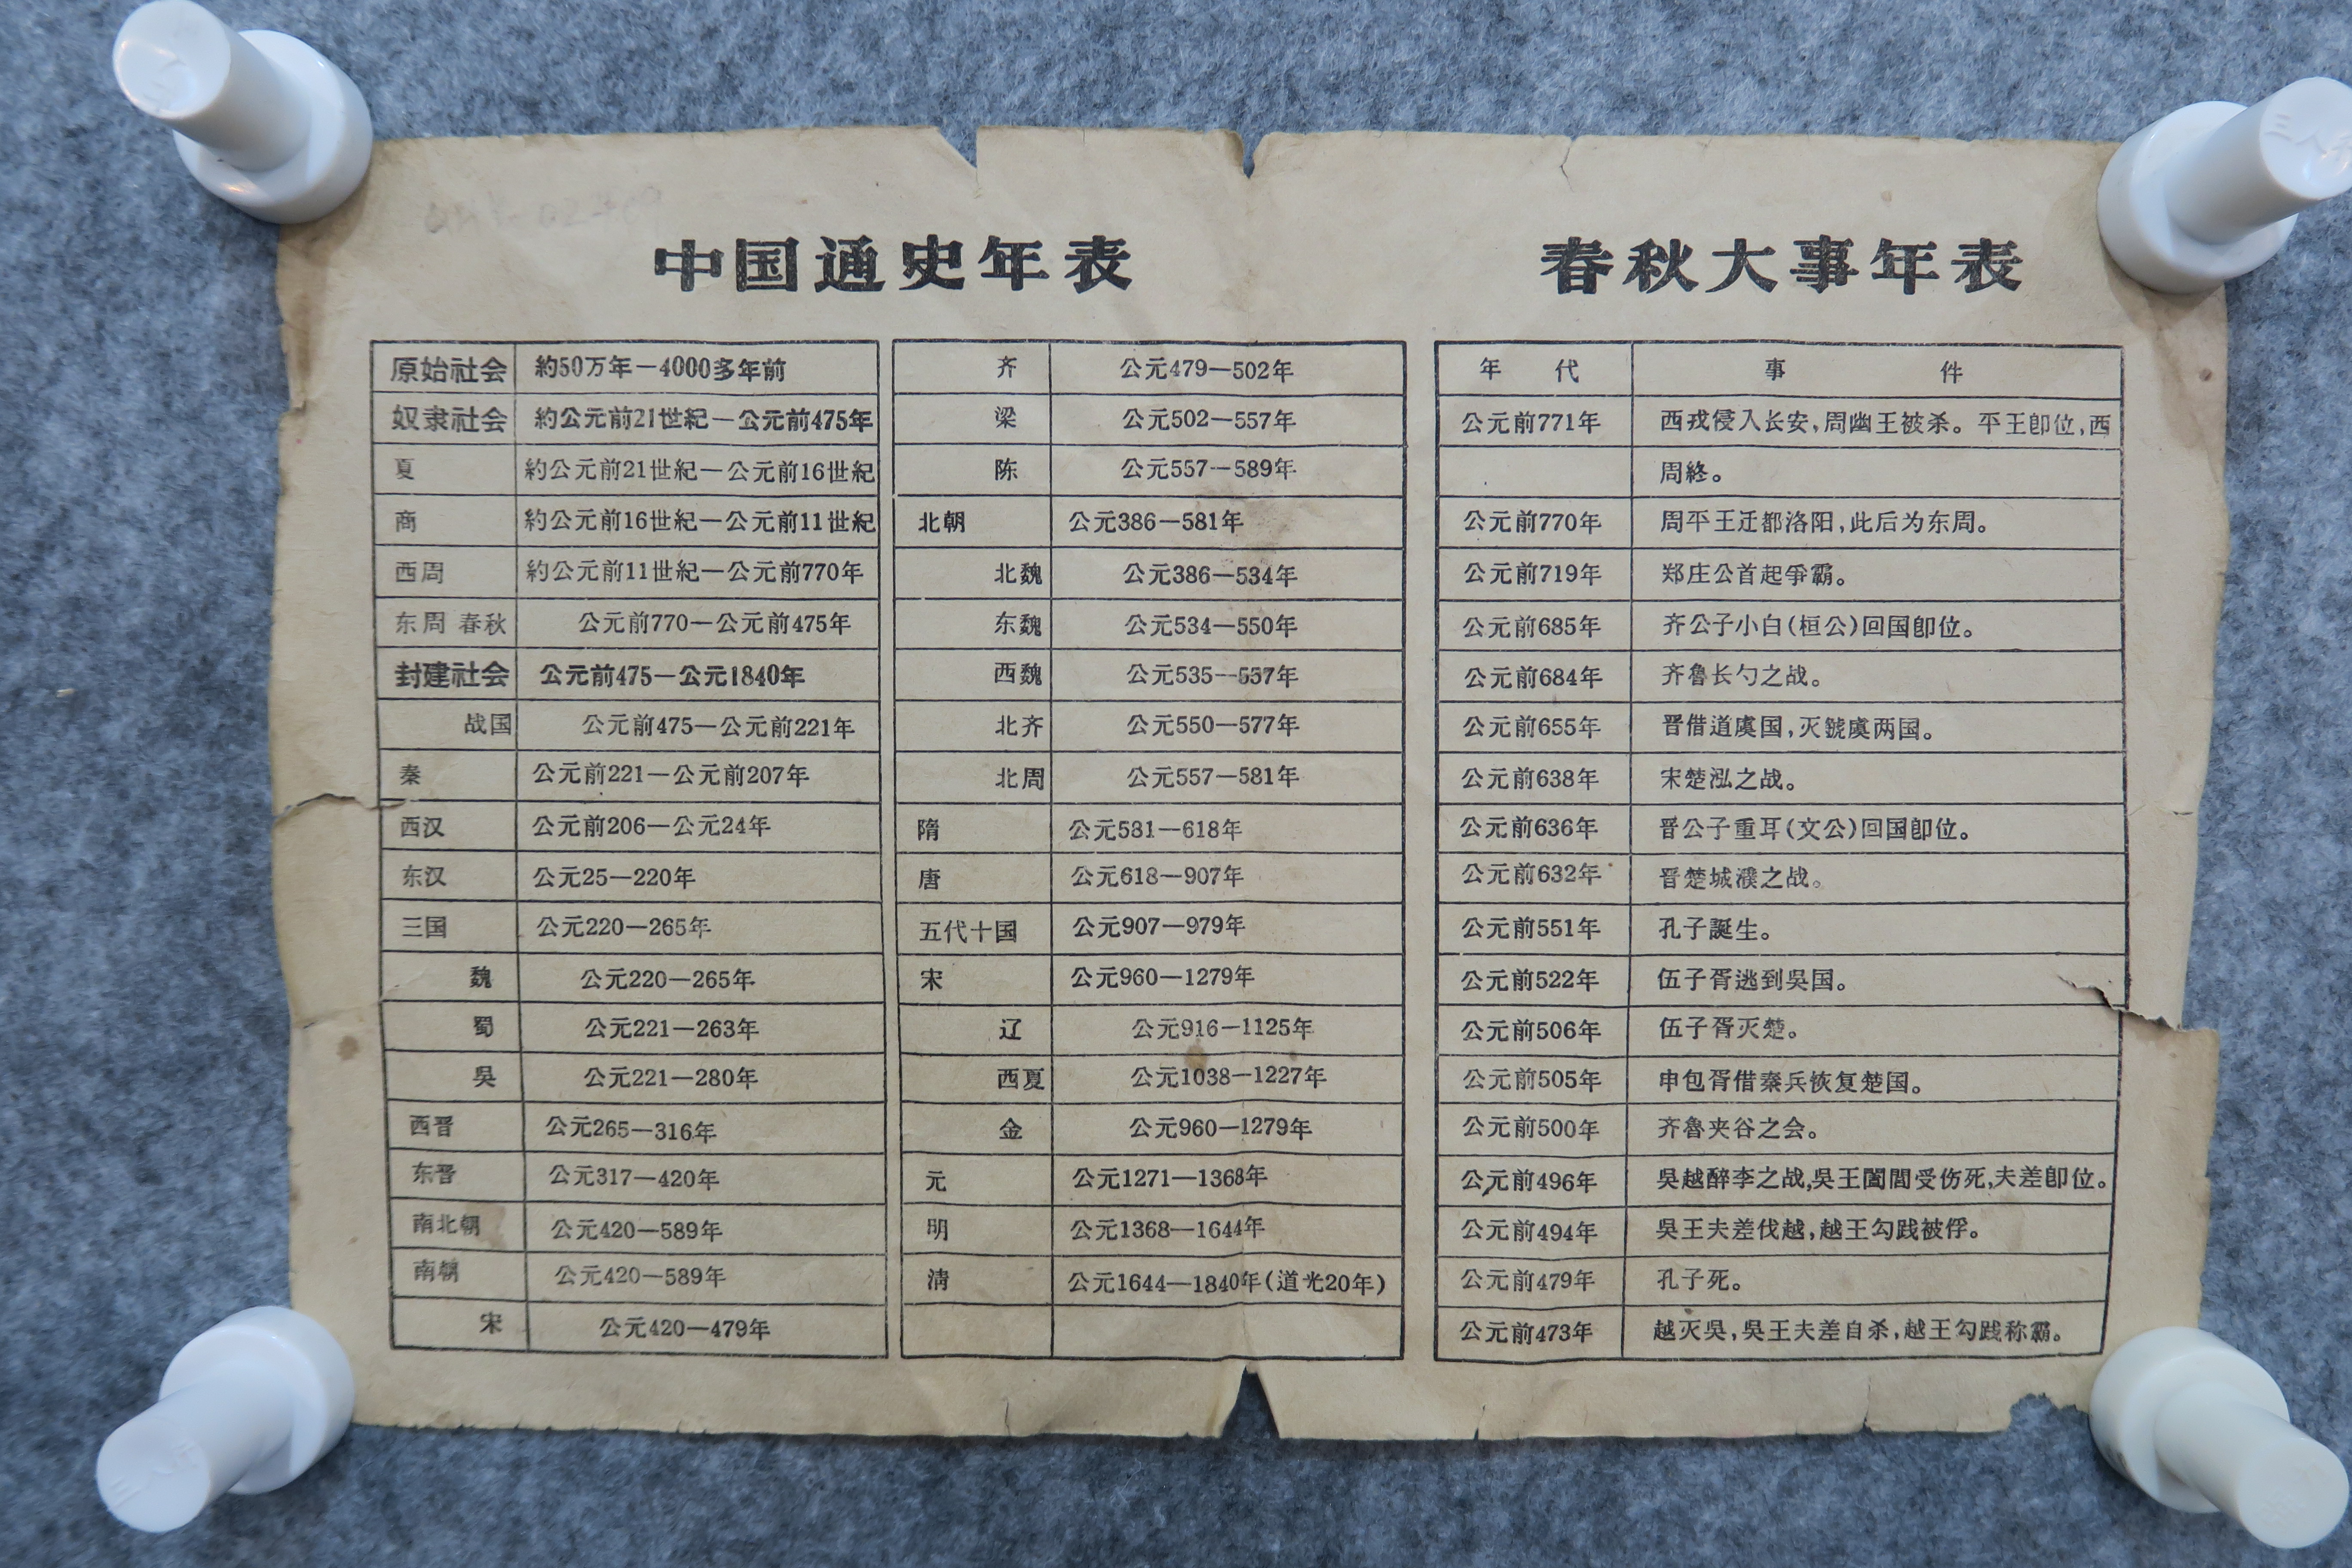 中国通史年表
原始社会 約50万年—4000多年前
奴隶社会 約公元前21世紀—公元前475年
夏 約公元前21世紀—公元前16世紀
商 約公元前16世紀—公元前11世紀
西周 約公元前11世紀—公元前770年
东周 春秋 公元前770—公元前475年
封建社会 公元前475—公元1840年
战国 公元前475—公元前221年
秦 公元前221—公元前207年
西汉 公元前206—公元24年
东汉 公元25—220年
三国 公元220—265年
魏 公元220—265年
蜀 公元221—263年
吳 公元221—280年
西晋 公元265—316年
东晋 公元317—420年
南北朝 公元420—589年
南朝 公元420—589年
宋 公元420—479年
齐 公元479—502年
梁 公元502—557年
陈 公元557—589年
北朝 公元386—581年
北魏 公元386—534年
东魏 公元534—550年
西魏 公元535—557年
北齐 公元550—577年
北周 公元557—581年
隋 公元581—618年
唐 公元618—907年
五代十国 公元907—979年
宋 公元960—1279年
辽 公元916—1125年
西夏 公元1038—1227年
金 公元960—1279年
元 公元1271—1368年
明 公元1368—1644年
清 公元1644—1840年(道光20年)
春秋大事年表
年代 事件
公元前771年 西戎侵入长安,周幽王被杀。平王卽位,西
周終。
公元前770年 周平王迁都洛阳,此后为东周。
公元前719年 郑庄公首起爭霸。
公元前685年 齐公子小白(桓公)回国卽位。
公元前684年 齐魯长勺之战。
公元前655年 晋借道虞国,灭虢虞两国。
公元前638年 宋楚泓之战。
公元前636年 晋公子重耳(文公)回国卽位。
公元前632年 晋楚城濮之战。
公元前551年 孔子誕生。
公元前522年 伍子胥逃到吳国。
公元前506年 伍子胥灭楚。
公元前505年 申包胥借秦兵恢复楚国。
公元前500年 齐魯夹谷之会。
公元前496年 吳越醉李之战,吳王闔閭受伤死,夫差卽位。
公元前494年 吳王夫差伐越,越王勾践被俘。
公元前479年 孔子死。
公元前473年 越灭吳,吳王夫差自杀,越王勾践称霸。